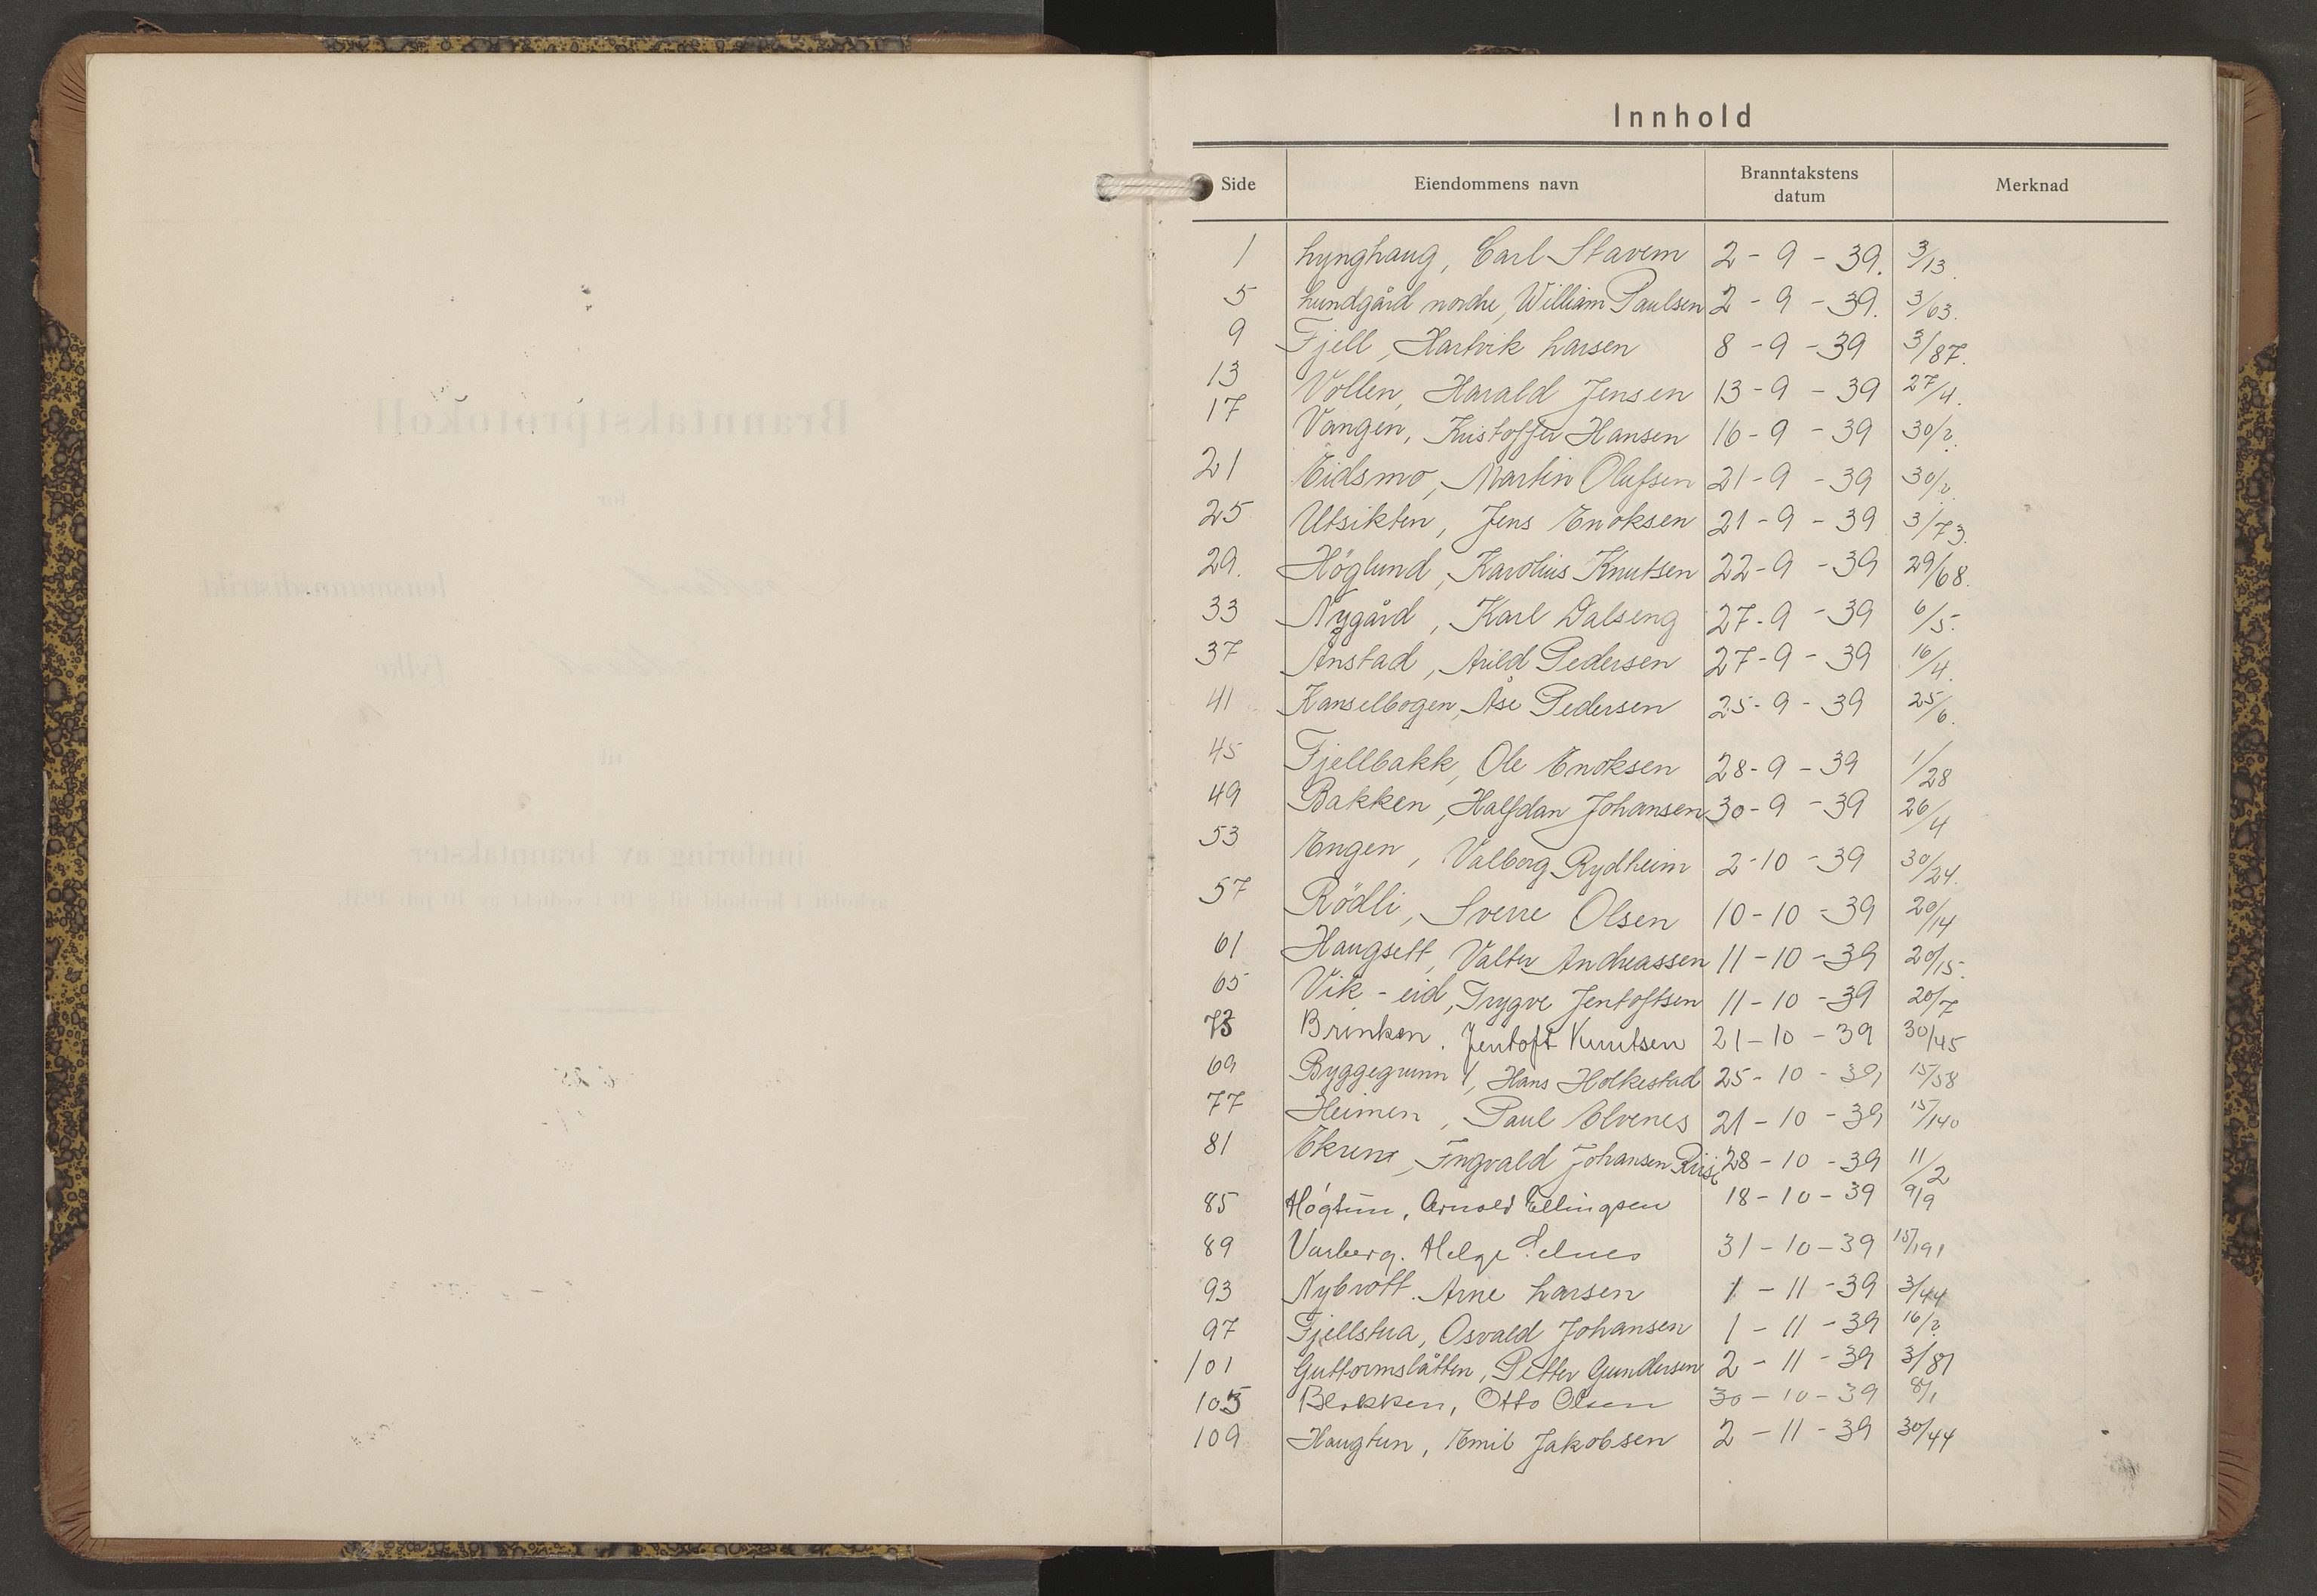 Innhold
Side Eiendommens navn Branntakstens datum Merknad
1 Lynghaug, Carl Stavem 2-9-39. 3/13.
5 Lundgård nordre, William Paulsen 2-9-39. 3/63.
9 Fjell, Hartvik Larsen 8-9-39 3/87.
13 Vollen, Harald Jensen 13-9-39 27/4.
17 Vangen, Kristoffer Hansen 16-9-39 30/2.
21 Eidsmo, Martin Olufsen 21-9-39 30/2.
25 Utsikten, Jens Enoksen 21-9-39 3/73.
29. Höglund, Karolius Knutsen 22-9-39 29/68.
33 Nygård, Karl Dalseng 27-9-39 6/5.
37 Anstad, Arild Pedersen 27-9-39 16/4.
41 Kanselbogen, Åse Pedersen 25-9-39 25/6.
45 Fjellbakk, Ole Enoksen 28-9-39 1/28
49 Bakken, Halfdan Johansen 30-9-39 26/4
53 Engen, Valborg Rydheim 2-10-39 30/24.
57 Rödli, Sverre Olsen 10-10-39 20/14
61 Haugsett, Valter Andreassen 11-10-39 20/15.
65 Vik-eid, Trygve Jentoftsen 11-10-39 20/7
73 Brinken. Jentoft Knutsen 21-10-39 30/45
69 Byggegrunn 1, Hans Holkestad 25-10-39 15/58
77 Heimen, Paul Elvenes 21-10-39 15/140
81 Ekrene, Ingvald Johansen 28-10-39 11/2
85 Högtun, Arnold Ellingsen 18-10-39 9/9
89 Varberg. Helge Selnes 31-10-39 15/191
93 Nybrott. Arne Larsen 1-11-39 3/44
97 Fjellstua, Osvald Johansen 1-11-39 16/2
101 Guttormslåtten, Petter Gundersen 2-11-39 3/81
105 Blekken, Otto Olsen 30-10-39 8/1
109 Haugtun, Emil Jakobsen 2-11-39 30/44